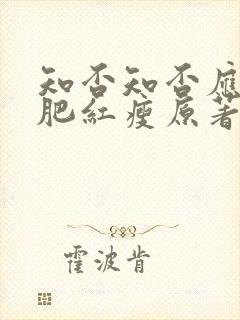 知否知否應
肥紅瘦原著
霍波肯